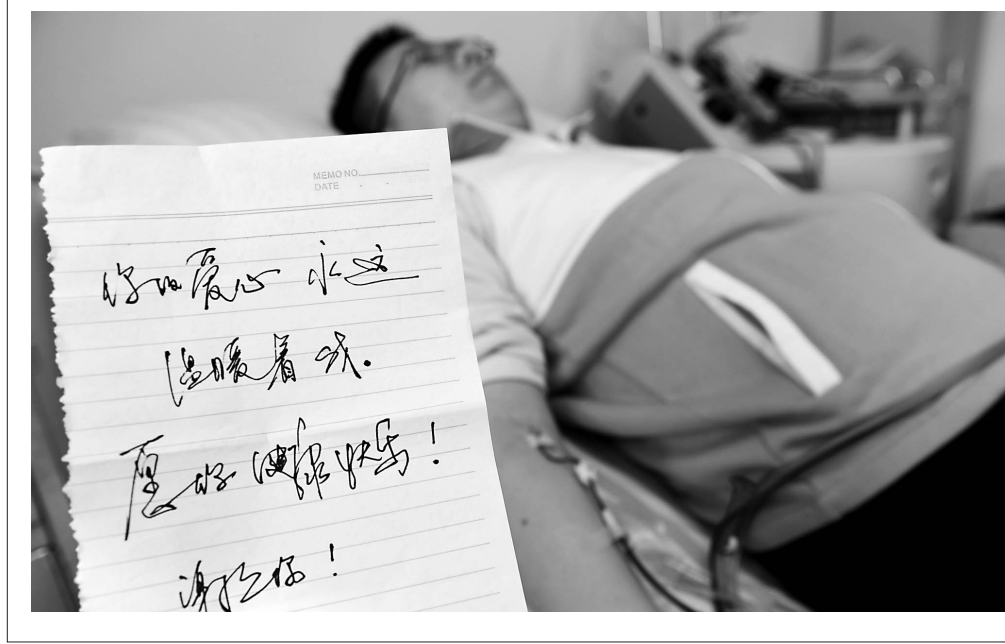 MEMO NO.
DATE
你的爱心 永远
温暖着我.
愿你健康快乐!
谢谢你!